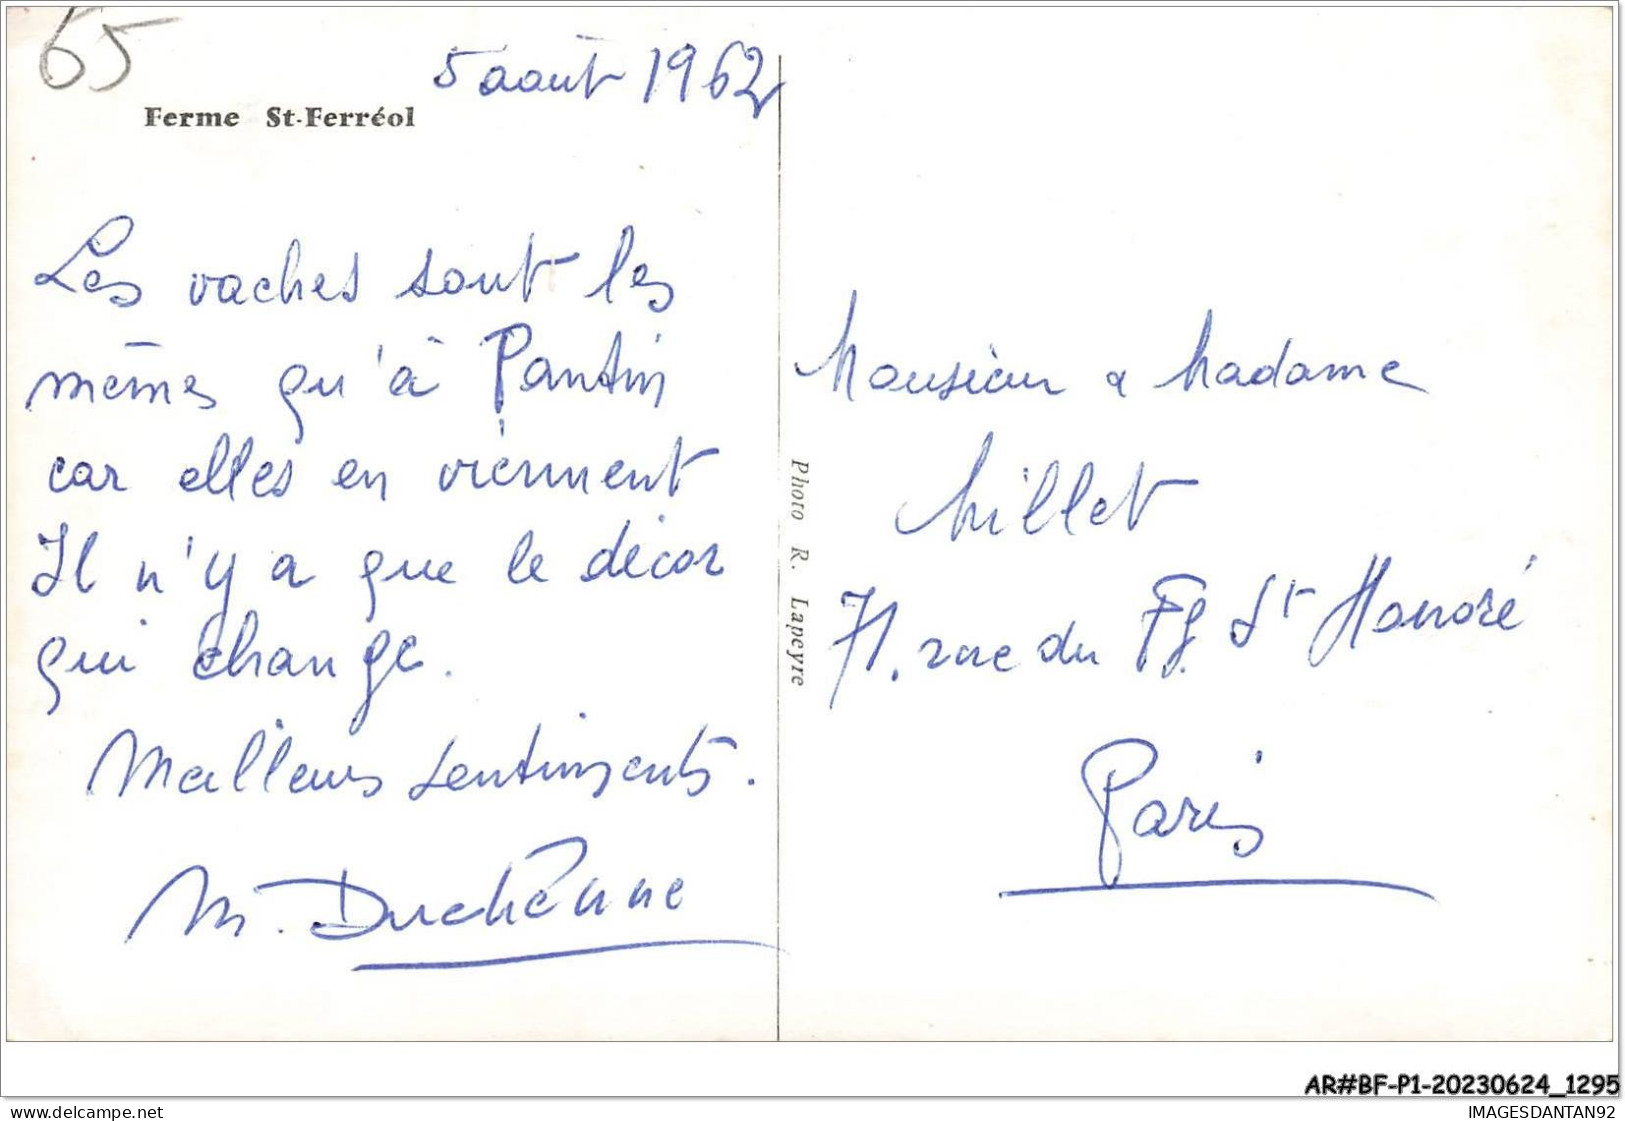 65
5 août 1962
Ferme St-Ferréol
Les vaches sont les
mêmes qu'à Pantin
car elles en viennent
Il n'y a que le décor
qui change.
Meilleurs sentiments.
M. Duchênne
Photo R. Lapeyre
Monsieur & Madame
Millet
71. rue du Fg St Honoré
Paris
AR#BF-P1-20230624_1295
delcampe.net
IMAGESDANTAN92